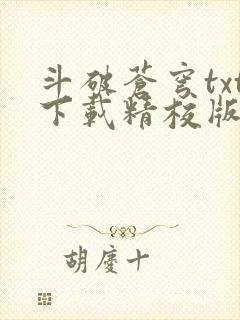 斗破蒼穹txt
下載精校版
胡慶十